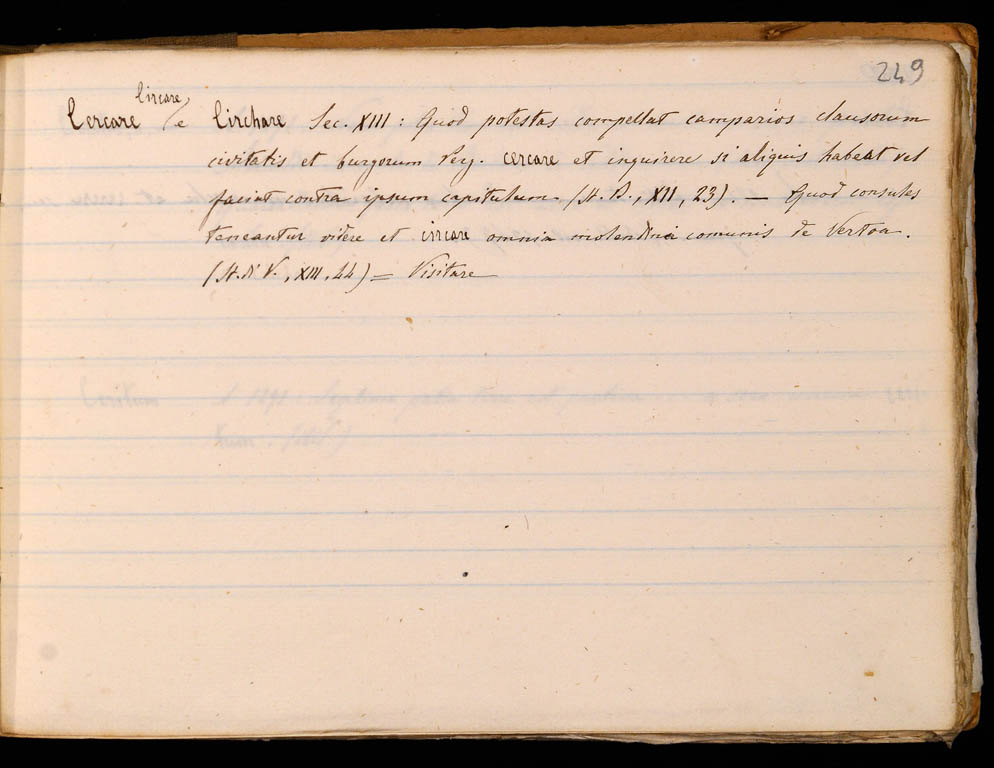 249
Circare
Cercare / e Circhare Sec. XIII: Quod potestas compellat camparios clausorum
civitatis et burgorum Perg. cercare et inquirere si aliquis habeat vel
faciat contra ipsum capitulum (St. B., XII, 23). — Quod consules
teneantur videre et circare omnia molendina comunis de Vertoa.
(St. di V., XIII, 44) = Visitare